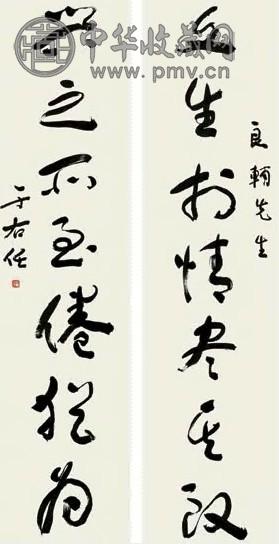 中华收藏网
www.pmv.cn
良輔先生
生於情盡其
之所至倦猶為
于右任